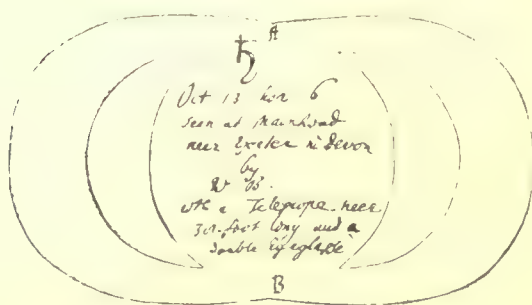 A
♄
Oct 13 hor 6
seen at Mainhead
neer Exeter in Devon
by
W B.
wth a Telescope neer
30. foot long and a
double Eyeglasse
B